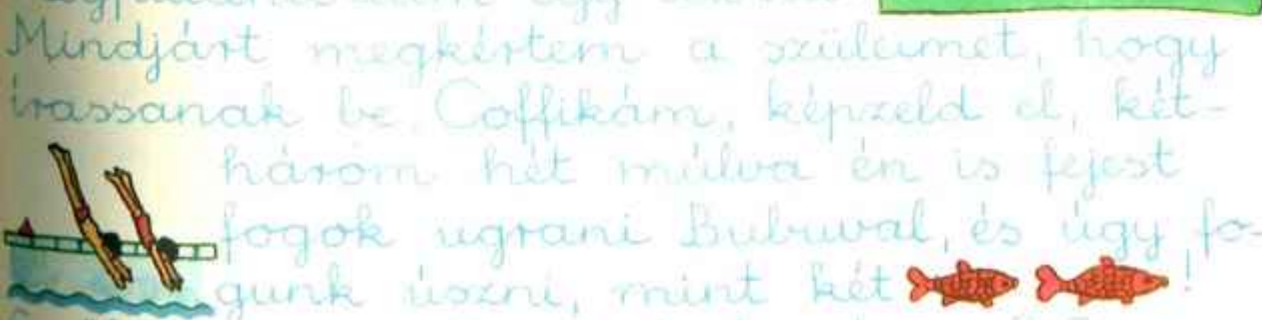 Mindjárt megkértem a szüleimet, hogy
írassanak be. Coffikám, képzeld el, két-
három hét múlva én is fejest
fogok ugrani Bubuval, és úgy fo-
gunk úszni, mint két !